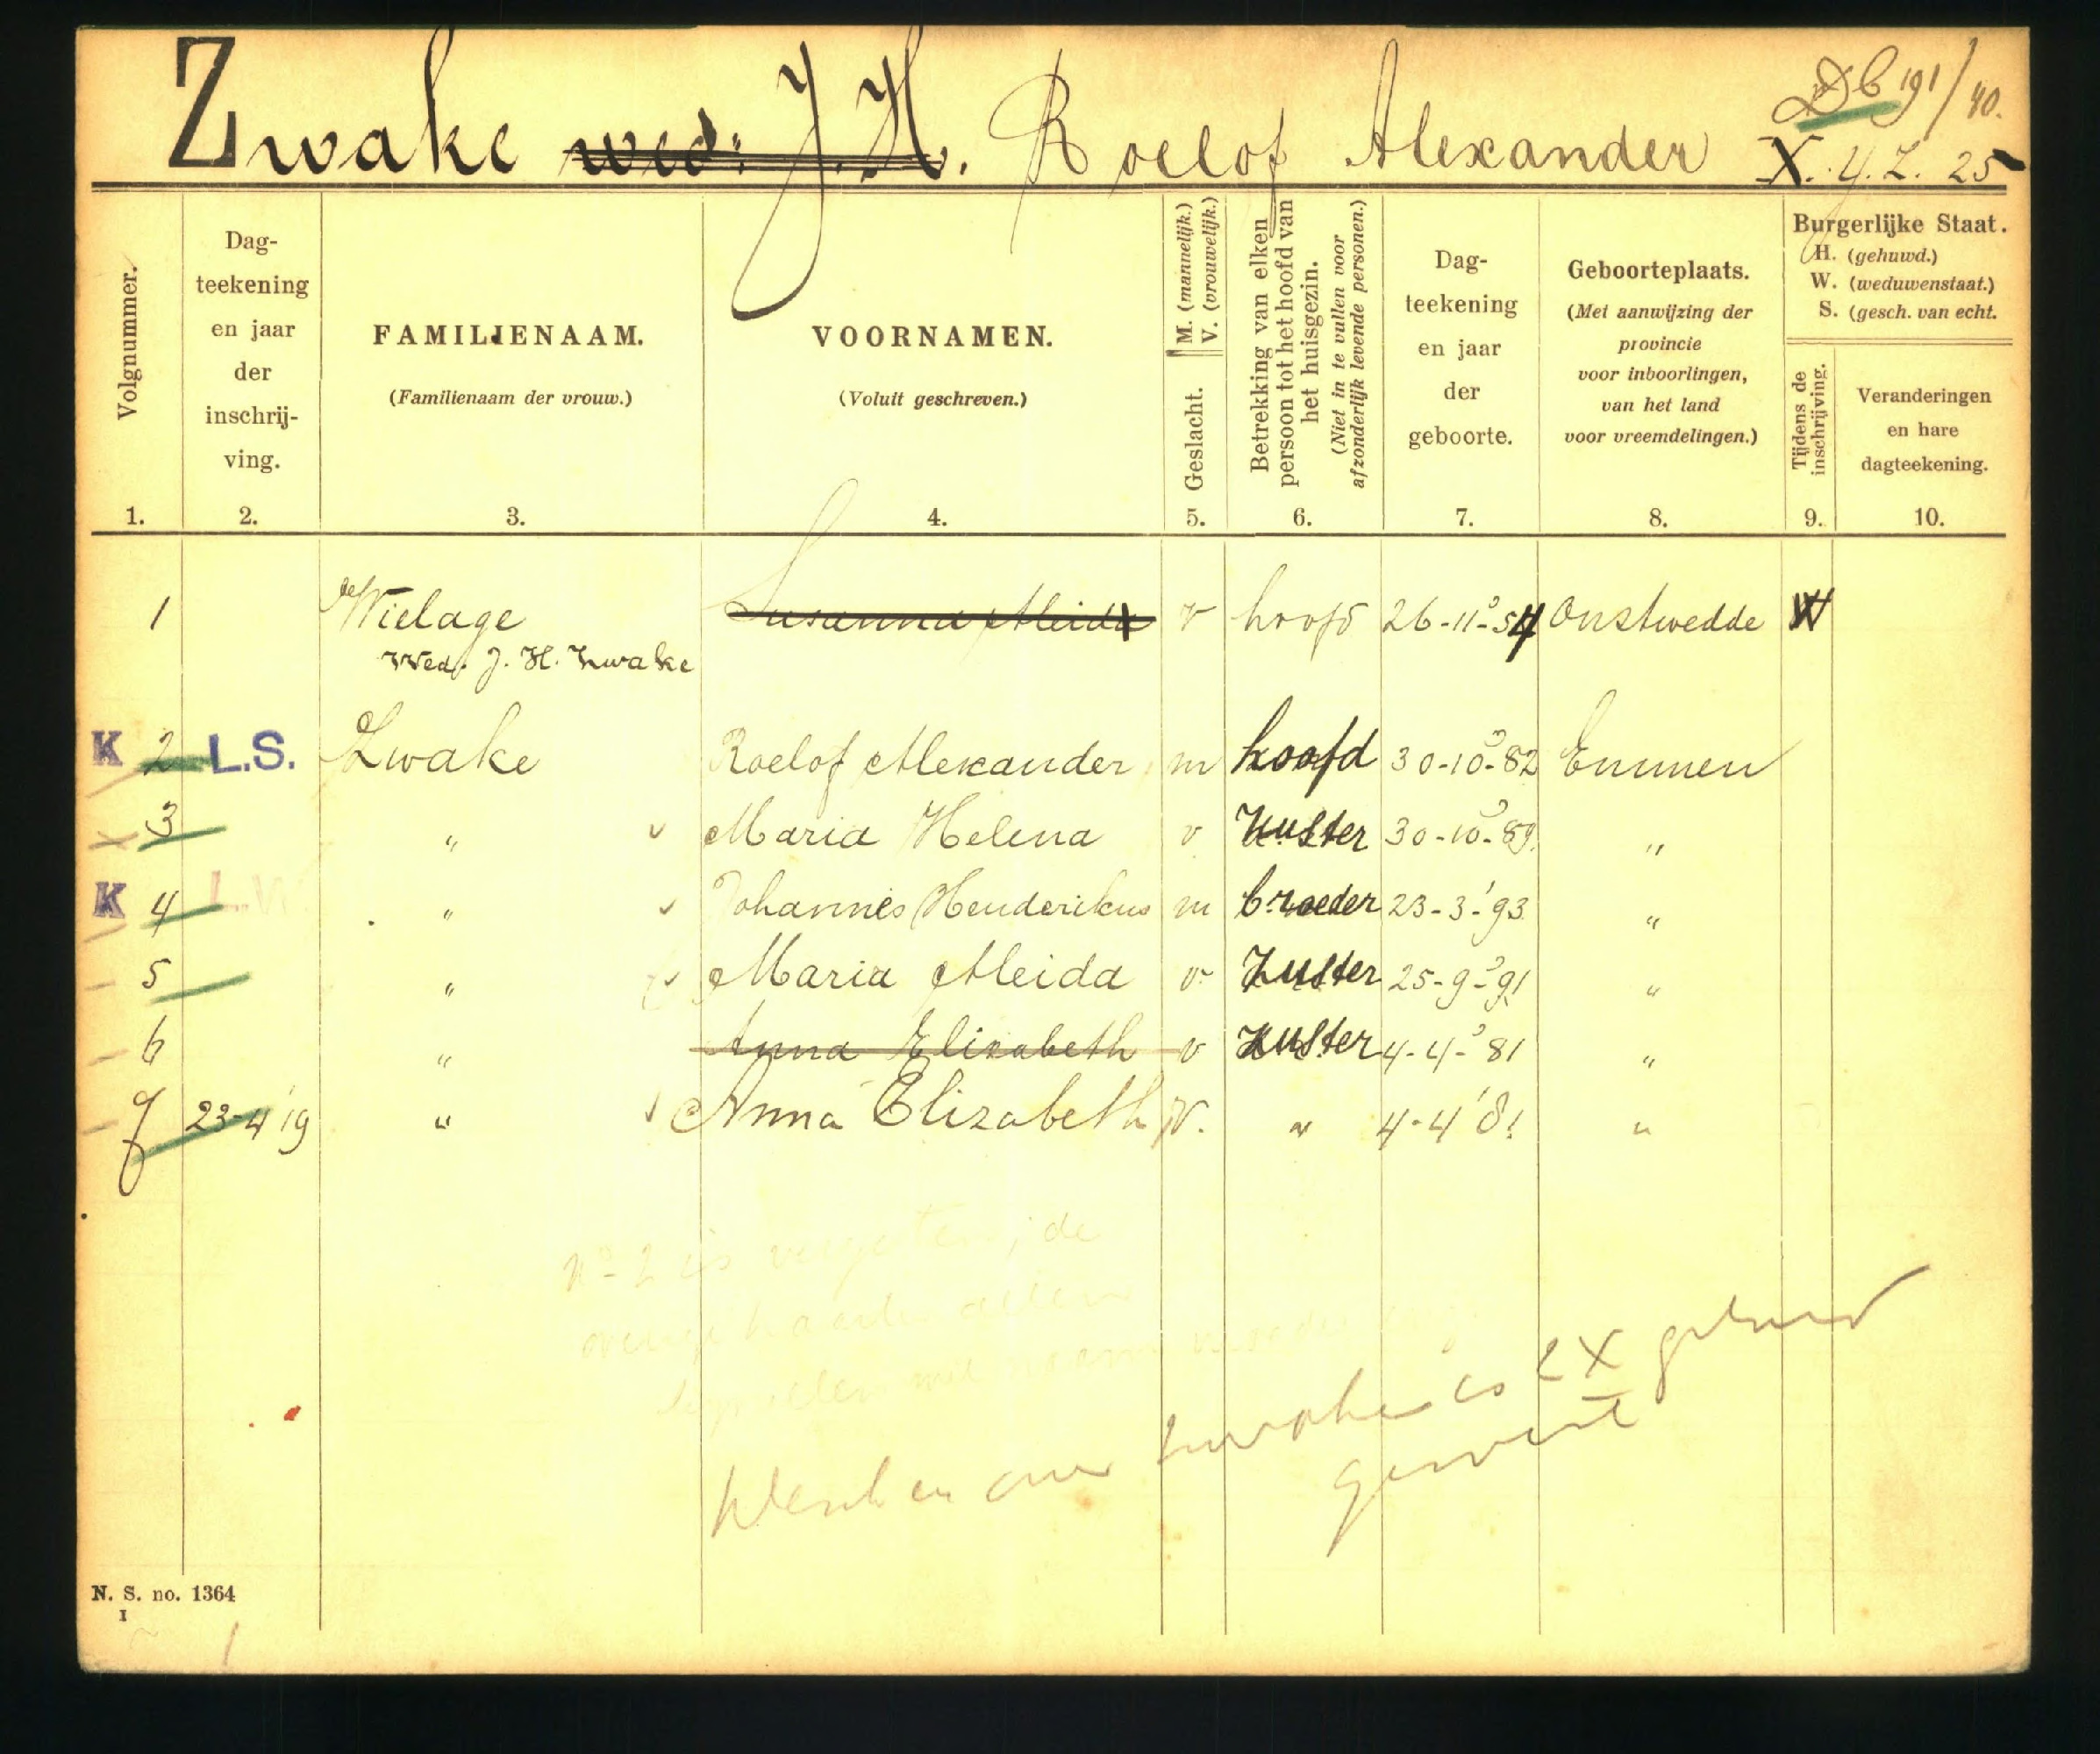 Db 191/40.
Zwake wed: J. H. Roelof Alexander X. y. Z. 25
Volgnummer.
Dag-
teekening
en jaar
der
inschrij-
ving.
FAMILIENAAM.
(Familienaam der vrouw.)
VOORNAMEN.
(Voluit geschreven.)
Geslacht. M. (mannelijk.)
V. (vrouwelijk.)
Betrekking van elken
persoon tot het hoofd van
het huisgezin.
(Niet in te vullen voor
afzonderlijk levende personen.)
Dag-
teekening
en jaar
der
geboorte.
Geboorteplaats.
(Met aanwijzing der
provincie
voor inboorlingen,
van het land
voor vreemdelingen.)
Burgerlijke Staat.
H. (gehuwd.)
W. (weduwenstaat.)
S. (gesch. van echt.
Tijdens de
inschrijving.
Veranderingen
en hare
dagteekening.
1. 2. 3. 4. 5. 6. 7. 8. 9. 10.
1 Wielage Susanna Aleida v hoofd 26-11-'54 Onstwedde W
Wed. J. H. Zwake
K 2 L.S. Zwake Roelof Alexander m hoofd 30-10-'82 Emmen
3 " Maria Helena v Zuster 30-10-'89 "
K 4 L.W " Johannes Henderikus m broeder 23-3-'93 "
5 " Maria Aleida v Zuster 25-9-'91 "
6 " Anna Elizabeth v Zuster 4-4-'81 "
7 23-4'19 " Anna Elizabeth V. " 4-4'81 "
No 2 is vergeten, de
is 2 X
N. S. no. 1364
I